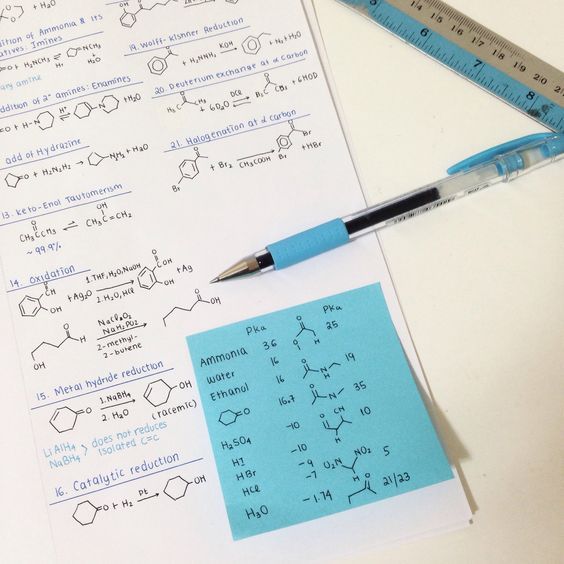 + H₂O
dition of Ammonia & its
atives: Imines
+ H₂NCH₃ ⇌ NCH₃
H⁺ + H₂O
ary amine
ddition of 2° amines: Enamines
+ H-N H⁺ ⇌ N + H₂O
add of Hydrazine
O + H₂N₂H₂ → + H₂O
13. Keto-Enol Tautomerism
O OH
CH₃CCH₃ ⇌ CH₃C=CH₂
~ 99.9%
14. Oxidation
O
CH
OH + Ag₂O
1. THF, H₂O, NaOH
2. H₂O, HCl
O
OH
OH + Ag
O
H
OH
NaClO₂
NaH₂PO₂
2-methyl-
2-butene
O
OH
15. Metal hydride reduction
O 1. NaBH₄ OH
2. H₂O
(racemic)
LiAlH₄
NaBH₄ > does not reduces
isolated C=C
16. Catalytic reduction
O + H₂ Pt → OH
19. Wolff-Kishner Reduction
O + H₂NNH₂ KOH → + N₂ + H₂O
20. Deuterium exchange at α carbon
O O
H₃C CH₃ + 6D₂O DCl ⇌ D₃C CD₃ + 6HOD
21. Halogenation at α carbon
O
Br + Br₂ CH₃COOH → O Br
Br + HBr
Pka Pka
Ammonia 36 25
Water 16 19
Ethanol 16
O 16.7 35
H₂SO₄ -10 10
HI -10
HBr -9 O₂N NO₂ 5
HCl -7
H₃O -1.74 21/23
5 6 7 8
14 15 16 17 18 19 20 21